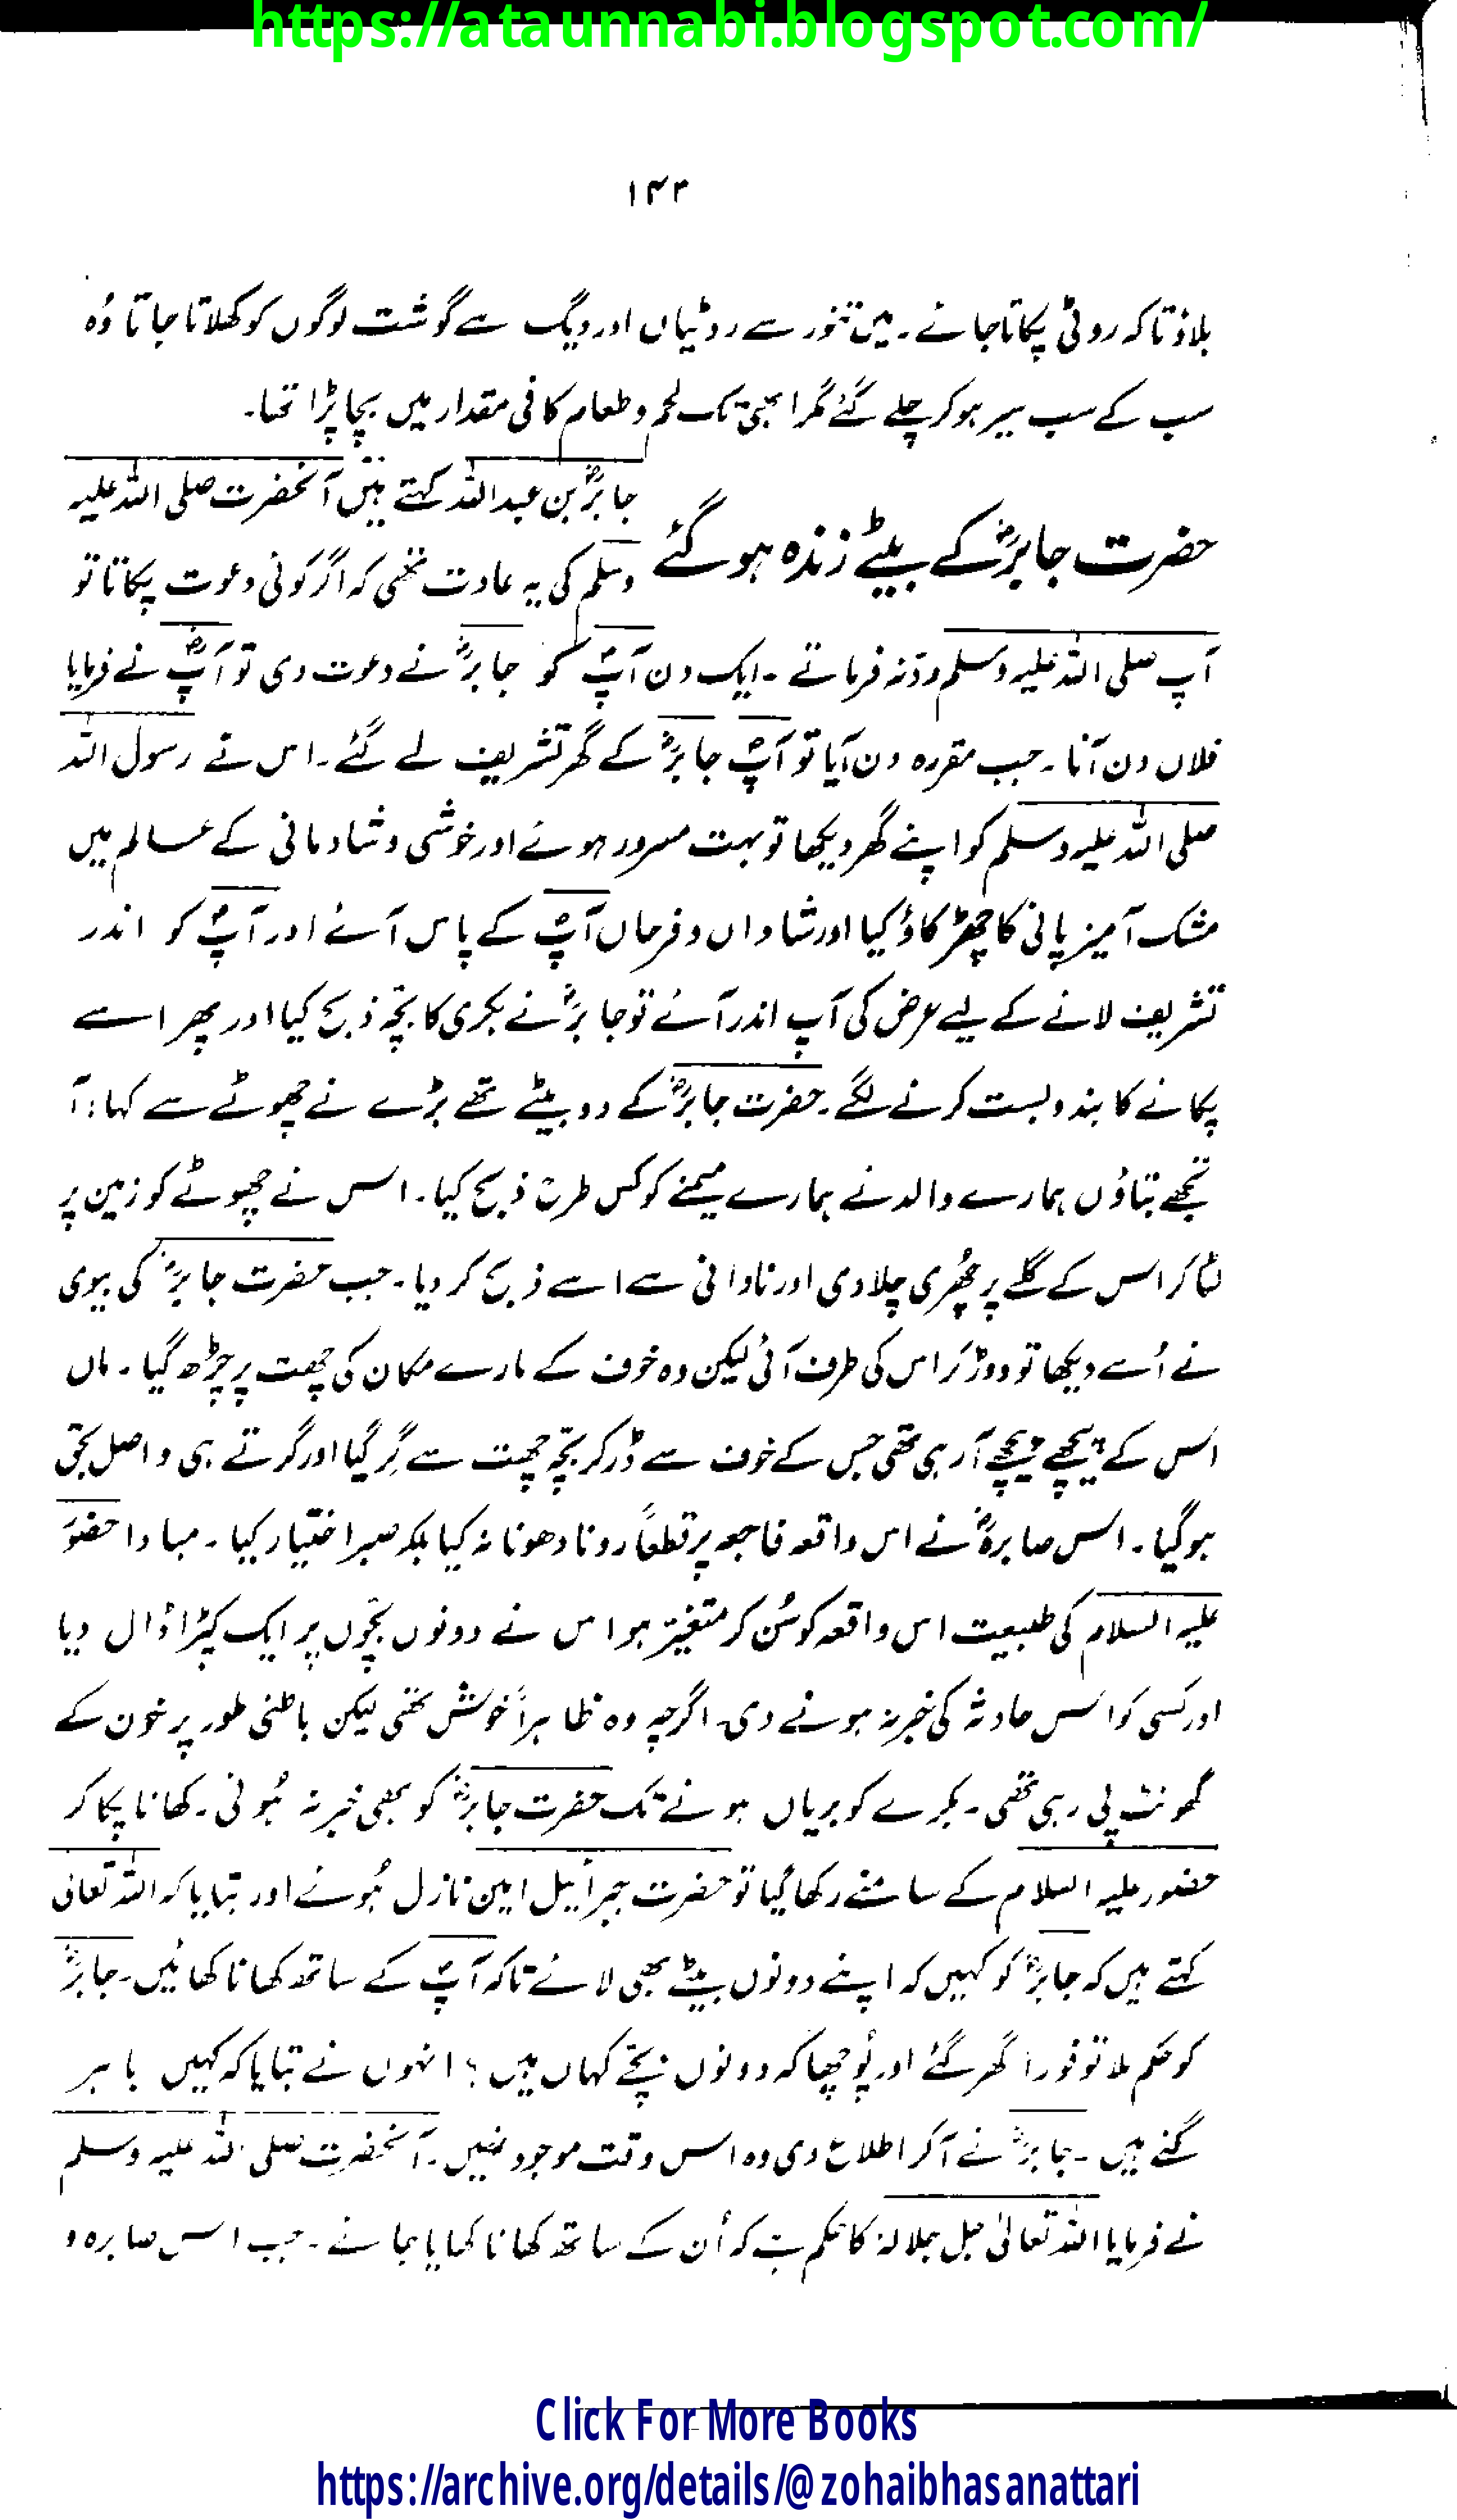 https://ataunnabi.blogspot.com/
۱۴۳
بلاؤ تاکہ روٹی پکاتا جائے۔ میں تنور سے روٹیاں اور دیگ سے گوشت لوگوں کو کھلاتا جاتا وُہ
سب کے سب سیر ہو کر چلے گئے مگر ابھی تک لحم و طعام کافی مقدار میں بچا پڑا تھا۔
حضرت جابرؓ کے بیٹے زندہ ہو گئے
جابرؓ بن عبداللہ کہتے ہیں آنحضرت صلی اللہ علیہ
وسلم کی یہ عادت تھی کہ اگر کوئی دعوت پکاتا تو
آپ صلی اللہ علیہ وسلم ردّ نہ فرماتے۔ ایک دن آپؐ کو جابرؓ نے دعوت دی تو آپؐ نے فرمایا
فلاں دن آنا۔ جب مقررہ دن آیا تو آپؐ جابرؓ کے گھر تشریف لے گئے۔ اس نے رسول اللہ
صلی اللہ علیہ وسلم کو اپنے گھر دیکھا تو بہت مسرور ہوئے اور خوشی و شادمانی کے عالم میں
مشک آمیز پانی کا چھڑکاؤ کیا اور شاداں و فرحاں آپؐ کے پاس آئے اور آپؐ کو اندر
تشریف لانے کے لیے عرض کی آپ اندر آئے تو جابرؓ نے بکری کا بچّہ ذبح کیا اور پھر اسے
پکانے کا بندوبست کرنے لگے۔ حضرت جابرؓ کے دو بیٹے تھے بڑے نے چھوٹے سے کہا: آ
تجھے بتاؤں ہمارے والد نے ہمارے میمنے کو کس طرح ذبح کیا۔ اس نے چھوٹے کو زمین پر
لٹا کر اس کے گلے پر چُھری چلا دی اور نادانی سے اسے ذبح کر دیا۔ جب حضرت جابرؓ کی بیوی
نے اُسے دیکھا تو دوڑ کر اس کی طرف آئی لیکن وہ خوف کے مارے مکان کی چھت پر چڑھ گیا۔ ماں
اس کے پیچھے پیچھے آ رہی تھی جس کے خوف سے ڈر کر بچّہ چھت سے گِر گیا اور گرتے ہی واصل بحق
ہو گیا۔ اس صابرہؓ نے اس واقعہ فاجعہ پر قطعاً رونا دھونا نہ کیا بلکہ صبر اختیار کیا۔ مبادا حضور
علیہ السلام کی طبیعت اس واقعہ کو سُن کر متغیّر ہو اس نے دونوں بچّوں پر ایک کپڑا ڈال دیا
اور کسی کو اس حادثہ کی خبر نہ ہونے دی۔ اگرچہ وہ ظاہراً خوش تھی لیکن باطنی طور پر خون کے
گھونٹ پی رہی تھی۔ بکرے کو بریاں ہونے تک حضرت جابرؓ کو بھی خبر نہ ہُوئی۔ کھانا پکا کر
حضور علیہ السلام کے سامنے رکھا گیا تو حضرت جبرائیل امین نازل ہُوئے اور بتایا کہ اللہ تعالیٰ
کہتے ہیں کہ جابرؓ کو کہیں کہ اپنے دونوں بیٹے بھی لائے تاکہ آپؐ کے ساتھ کھانا کھائیں۔ جابرؓ
کو حکم ملا تو فوراً گھر گئے اور پُوچھا کہ دونوں بچّے کہاں ہیں؟ انہوں نے بتایا کہ کہیں باہر
گئے ہیں۔ جابرؓ نے آ کر اطلاع دی وہ اس وقت موجود نہیں۔ آنحضرت صلی اللہ علیہ وسلم
نے فرمایا اللہ تعالیٰ جل جلالہ کا حکم ہے کہ اُن کے ساتھ کھانا کھایا جائے۔ جب اس صابرہ و
Click For More Books
https://archive.org/details/@zohaibhasanattari